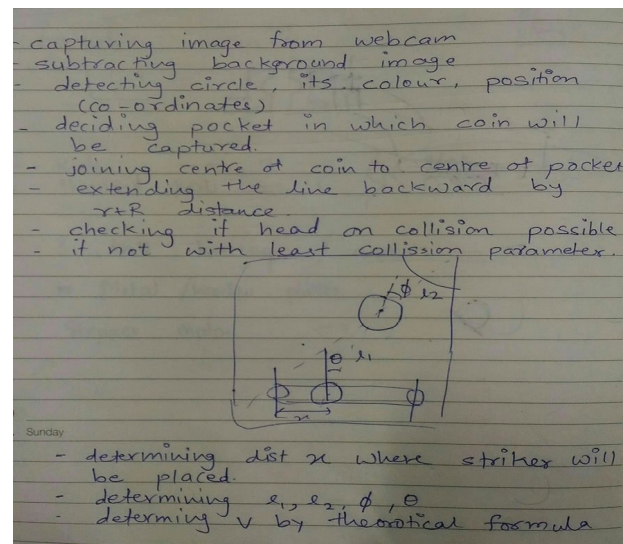 - capturing image from webcam
- subtracting background image
- detecting circle, its colour, position
(co-ordinates)
- deciding pocket in which coin will
be captured.
- joining centre of coin to centre of pocket
- extending the line backward by
r+R distance.
- checking if head on collision possible
- if not with least collission parameter.
ϕ r2
θ r1
x
Sunday
- determining dist x where striker will
be placed.
- determining r1, r2, ϕ, θ
- determing v by theorotical formula